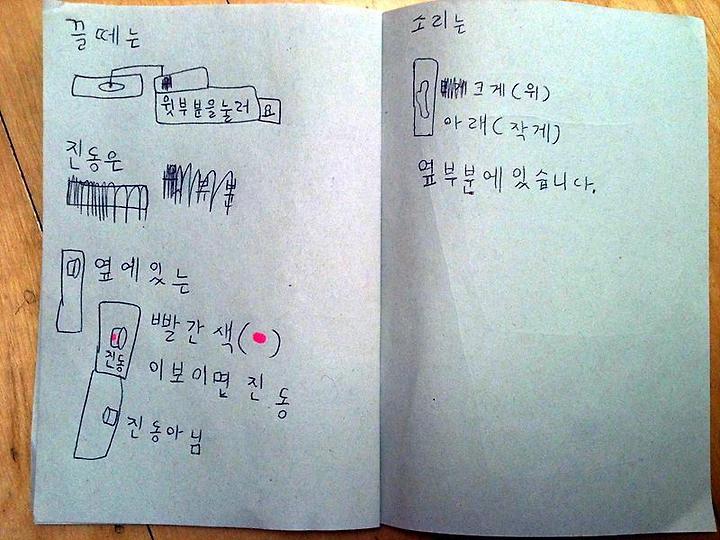 끌 떼 는
윗부분을눌러
요
진동은
옆에있는
빨간색( )
진동
이보이면 진동
진동아님
소리는
크게(위)
아래(작게)
옆부분에있습니다.